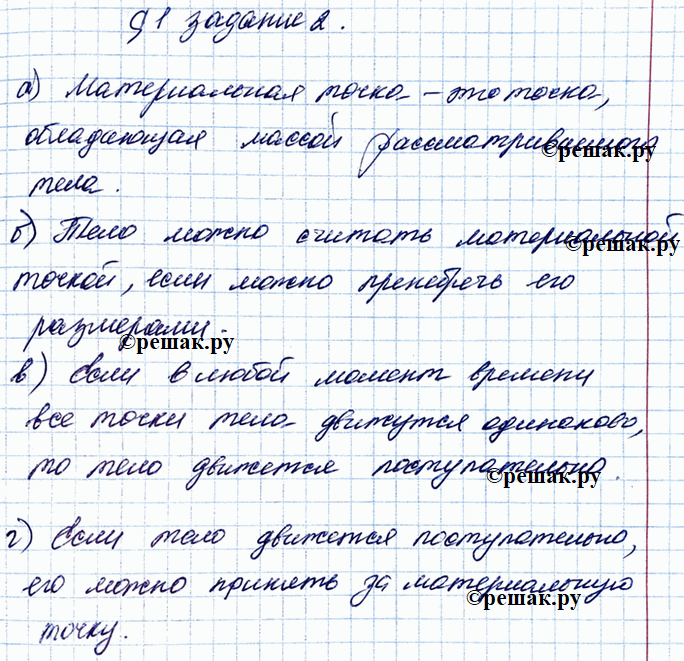 §1 задание 2.
а) Материальная точка – это точка,
обладающая массой рассматриваемого
©решак.ру
тела.
б) Тело можно считать материальной
©решак.ру
точкой, если можно пренебречь его
размерами.
©решак.ру
в) Если в любой момент времени
все точки тела движутся одинаково,
то тело движется поступательно.
©решак.ру
г) Если тело движется поступательно,
его можно принять за материальную
©решак.ру
точку.